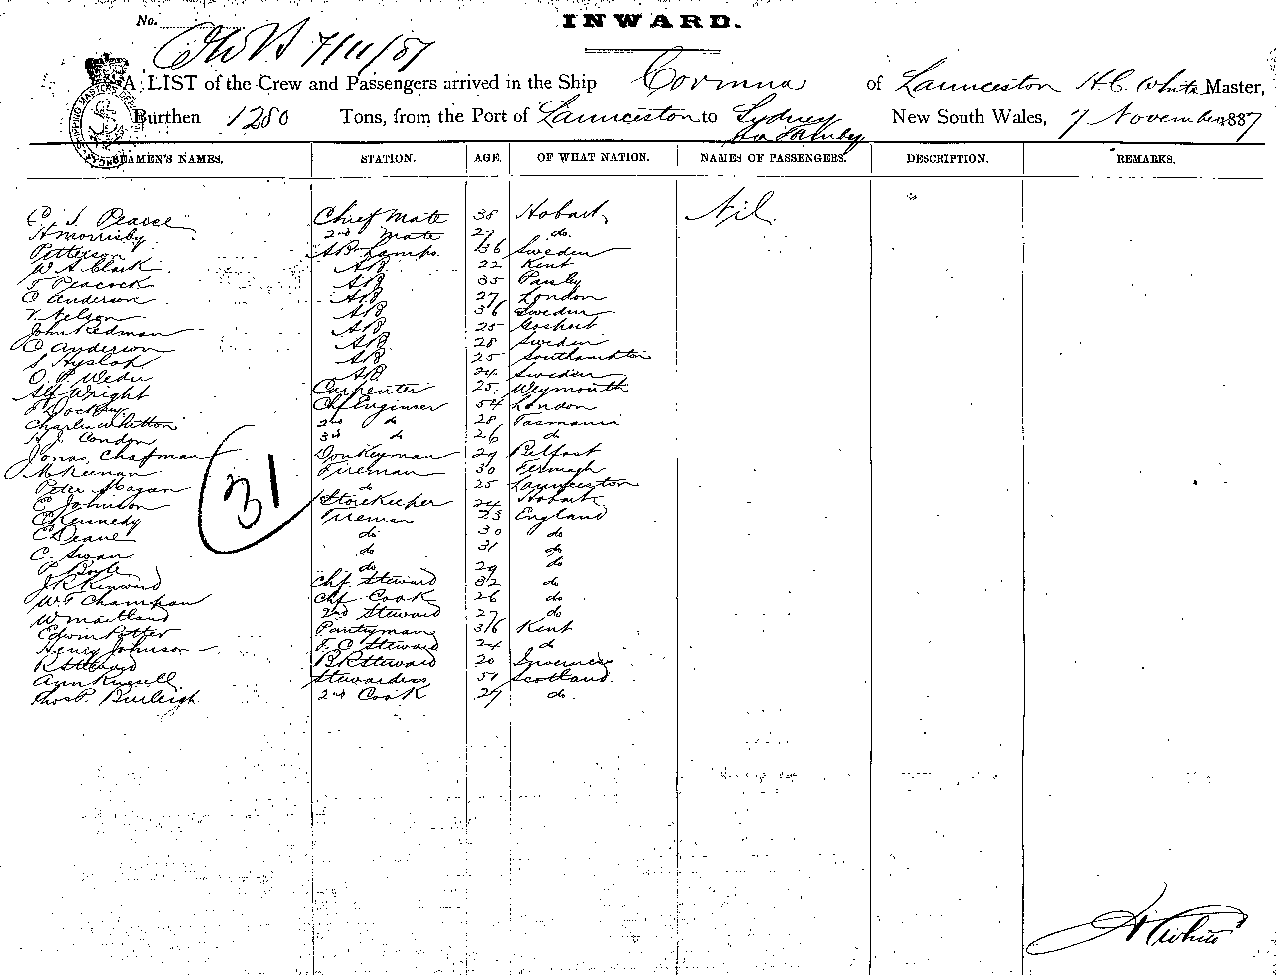 No.
INWARD.
7/11/87
A LIST of the Crew and Passengers arrived in the Ship Corinna of Launceston H.C. White Master,
Burthen 1280 Tons, from the Port of Launceston to Sydney New South Wales, 7 November 1887
SEAMEN'S NAMES. STATION. AGE. OF WHAT NATION. NAMES OF PASSENGERS. DESCRIPTION. REMARKS.
Pearce Chief Mate 38 Hobart Nil
H Morrisby 2nd Mate 27 do.
Petterson AB Lamps 36 Sweden
W A Clark AB 22 Kent
T Peacock AB 35
C Anderson AB 27 London
V. Nelson AB 36 Sweden
John Redman AB 25 Gosport
C Anderson AB 28 Sweden
S Hyslop AB 25 Southampton
AB 24 Sweden
Alf Wright Carpenter 25 Weymouth
Chf Engineer 54 London
Charles W Hutton 2nd do 28 Tasmania
H J. Condon 3rd do 26 do
Jonas Chapman Donkeyman 29 Belfast
McKeenan Fireman 30
Peter Hogan do 25 Launceston
E Johnson Storekeeper 24 Hobart
C Kennedy Fireman 23 England
C Deane do 30 do
C. Swan do 31 do
P Boyle do 29 do
Chf Steward 32 do
W. T Champion Chf Cook 26 do
W Maitland 2nd Steward 27 do
Edwin Potter Pantryman 36 Kent
Henry Johnson F. C Steward 24 do
R Steward B R Steward 20 Inverness
Ann Russell Stewardess 51 Scotland
Thos P. Burleigh 2nd Cook 29 do.
31
H C White